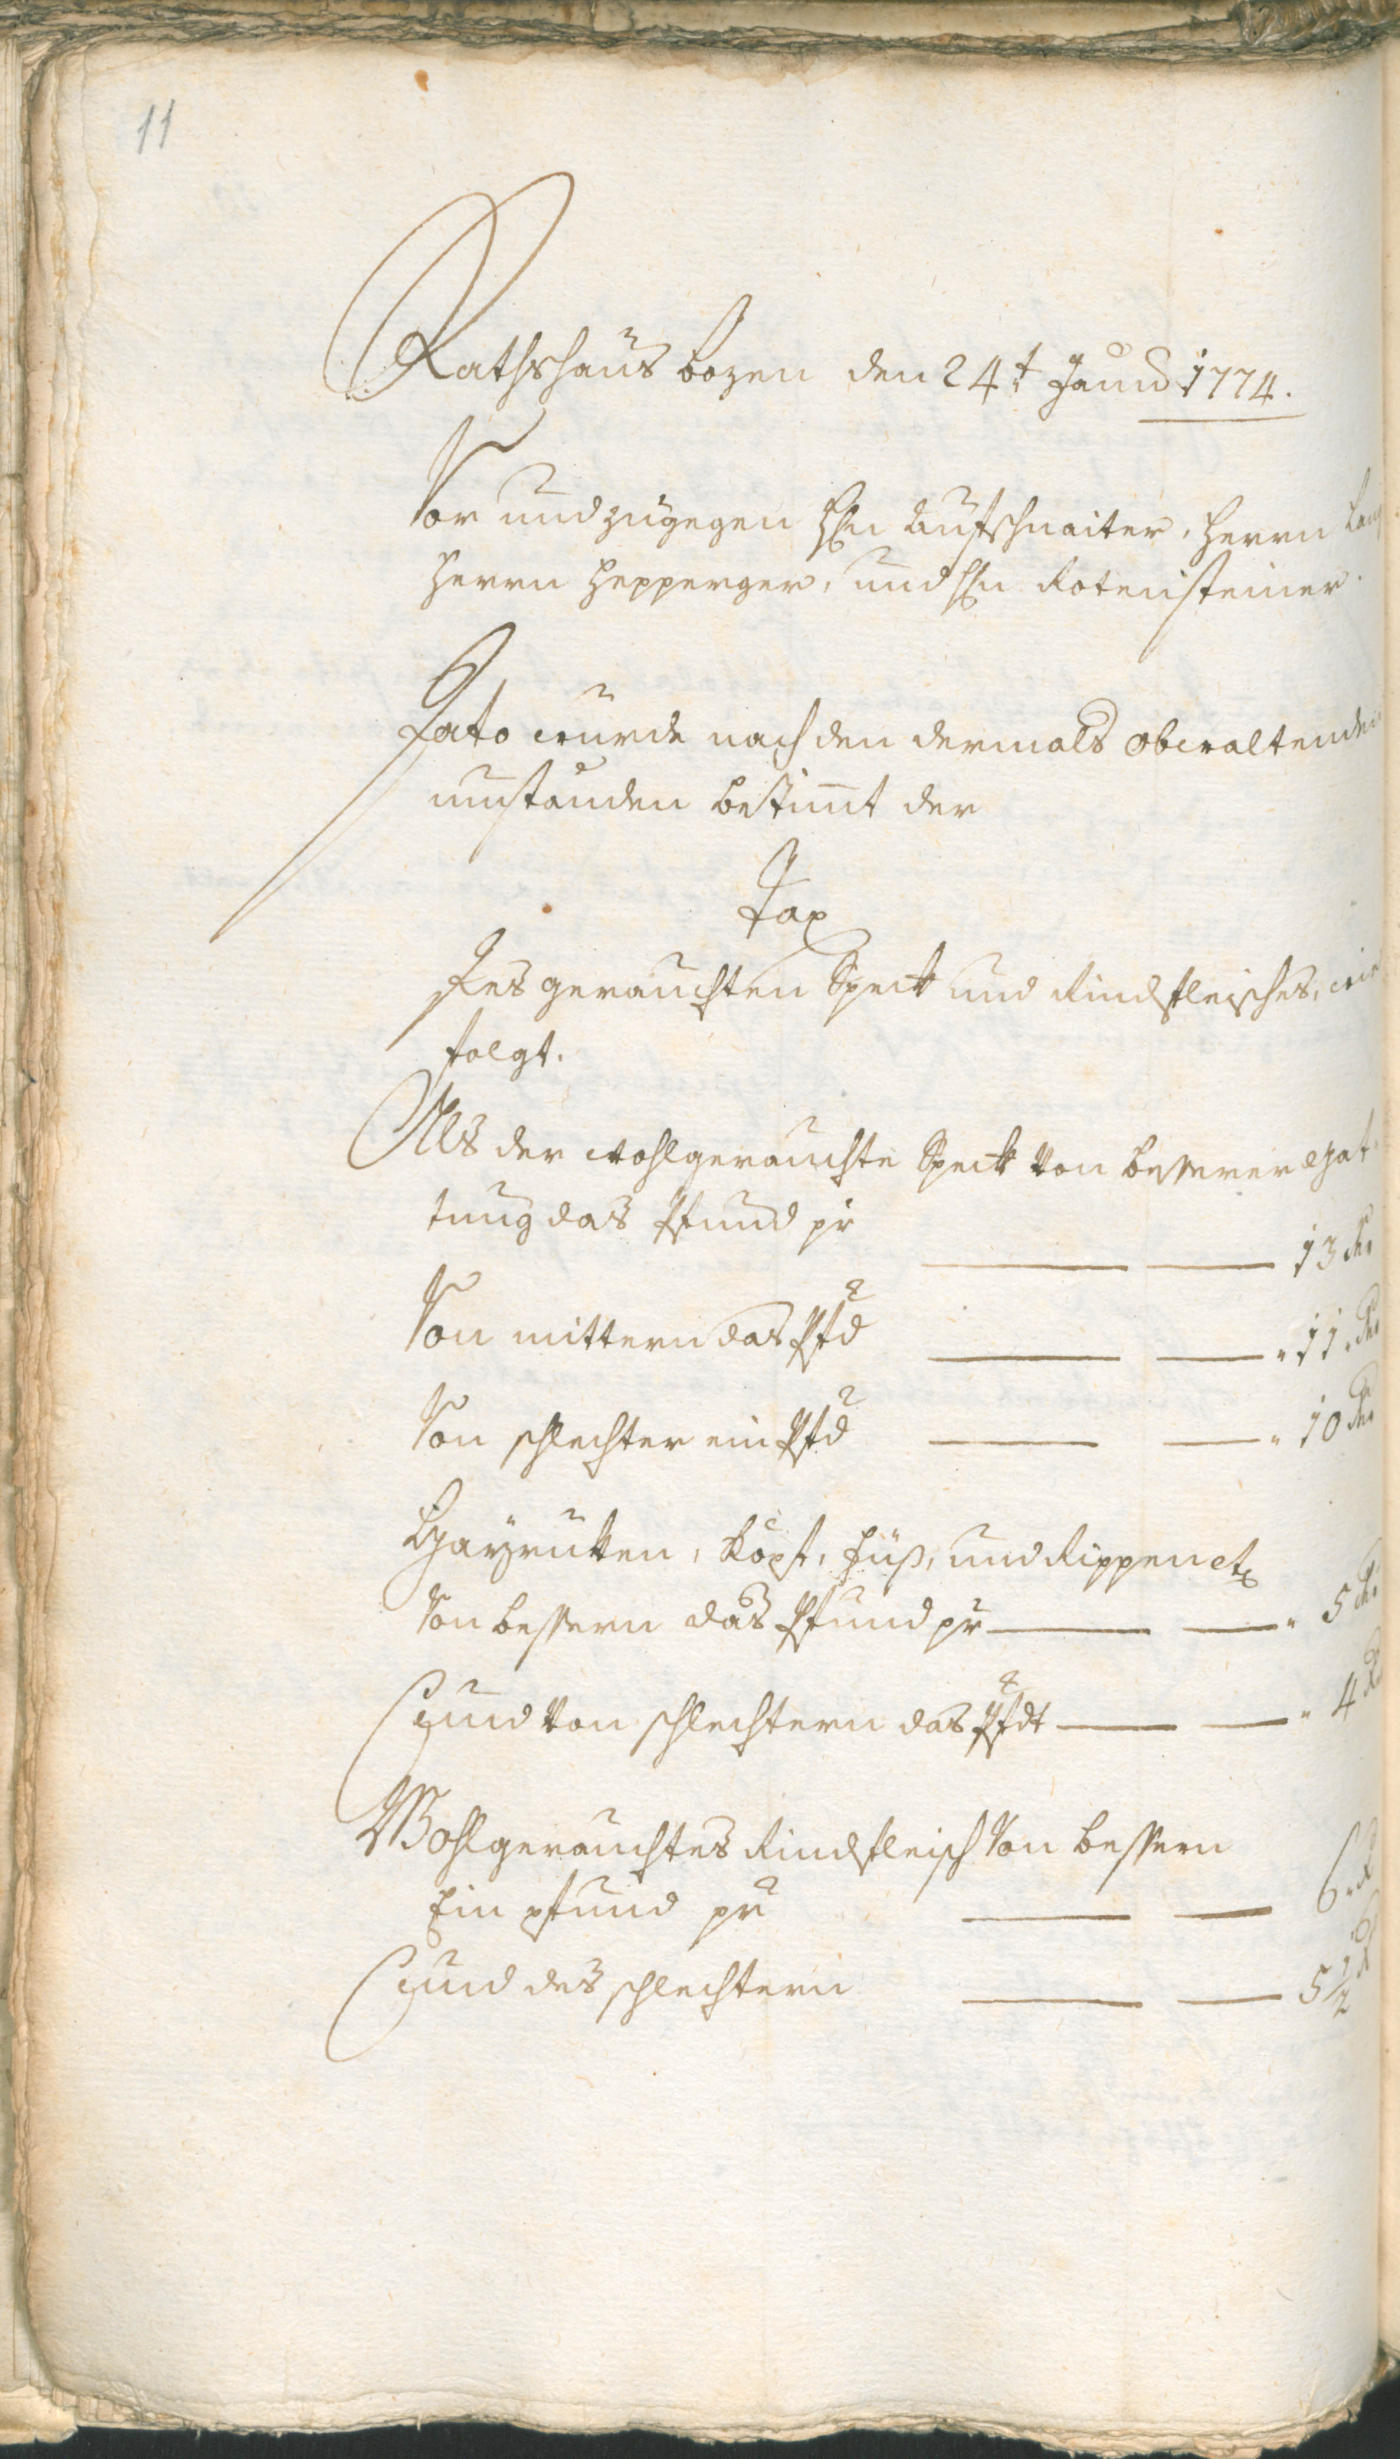 11
Rathshaus bozen den 24t 1774.
Vor und zugegen Hhn aufschnaiter, Herrn
Herrn Hepperger, und Hhn Rotensteiner.
Dato wurde nach den dermals obwaltenden
umständen bestimt der
Tax
Des gerauchten Speck und Rindfleisches, wie
folgt.
Als der wohlgerauchte Speck von besserer gat¬
tung das Pfund pr 13 kr
Von mittern das Pfd 11 kr
Von schlechter ein Pfd 10 kr
Köpf, Füß, und Rippen etc
Von bessern das Pfund pr 5 kr
und von schlechtern das Pfdt 4 kr
Wohlgerauchtes Rindfleisch von bessern
Ein pfund pr 6 kr
und des schlechtern 5 1/2 kr